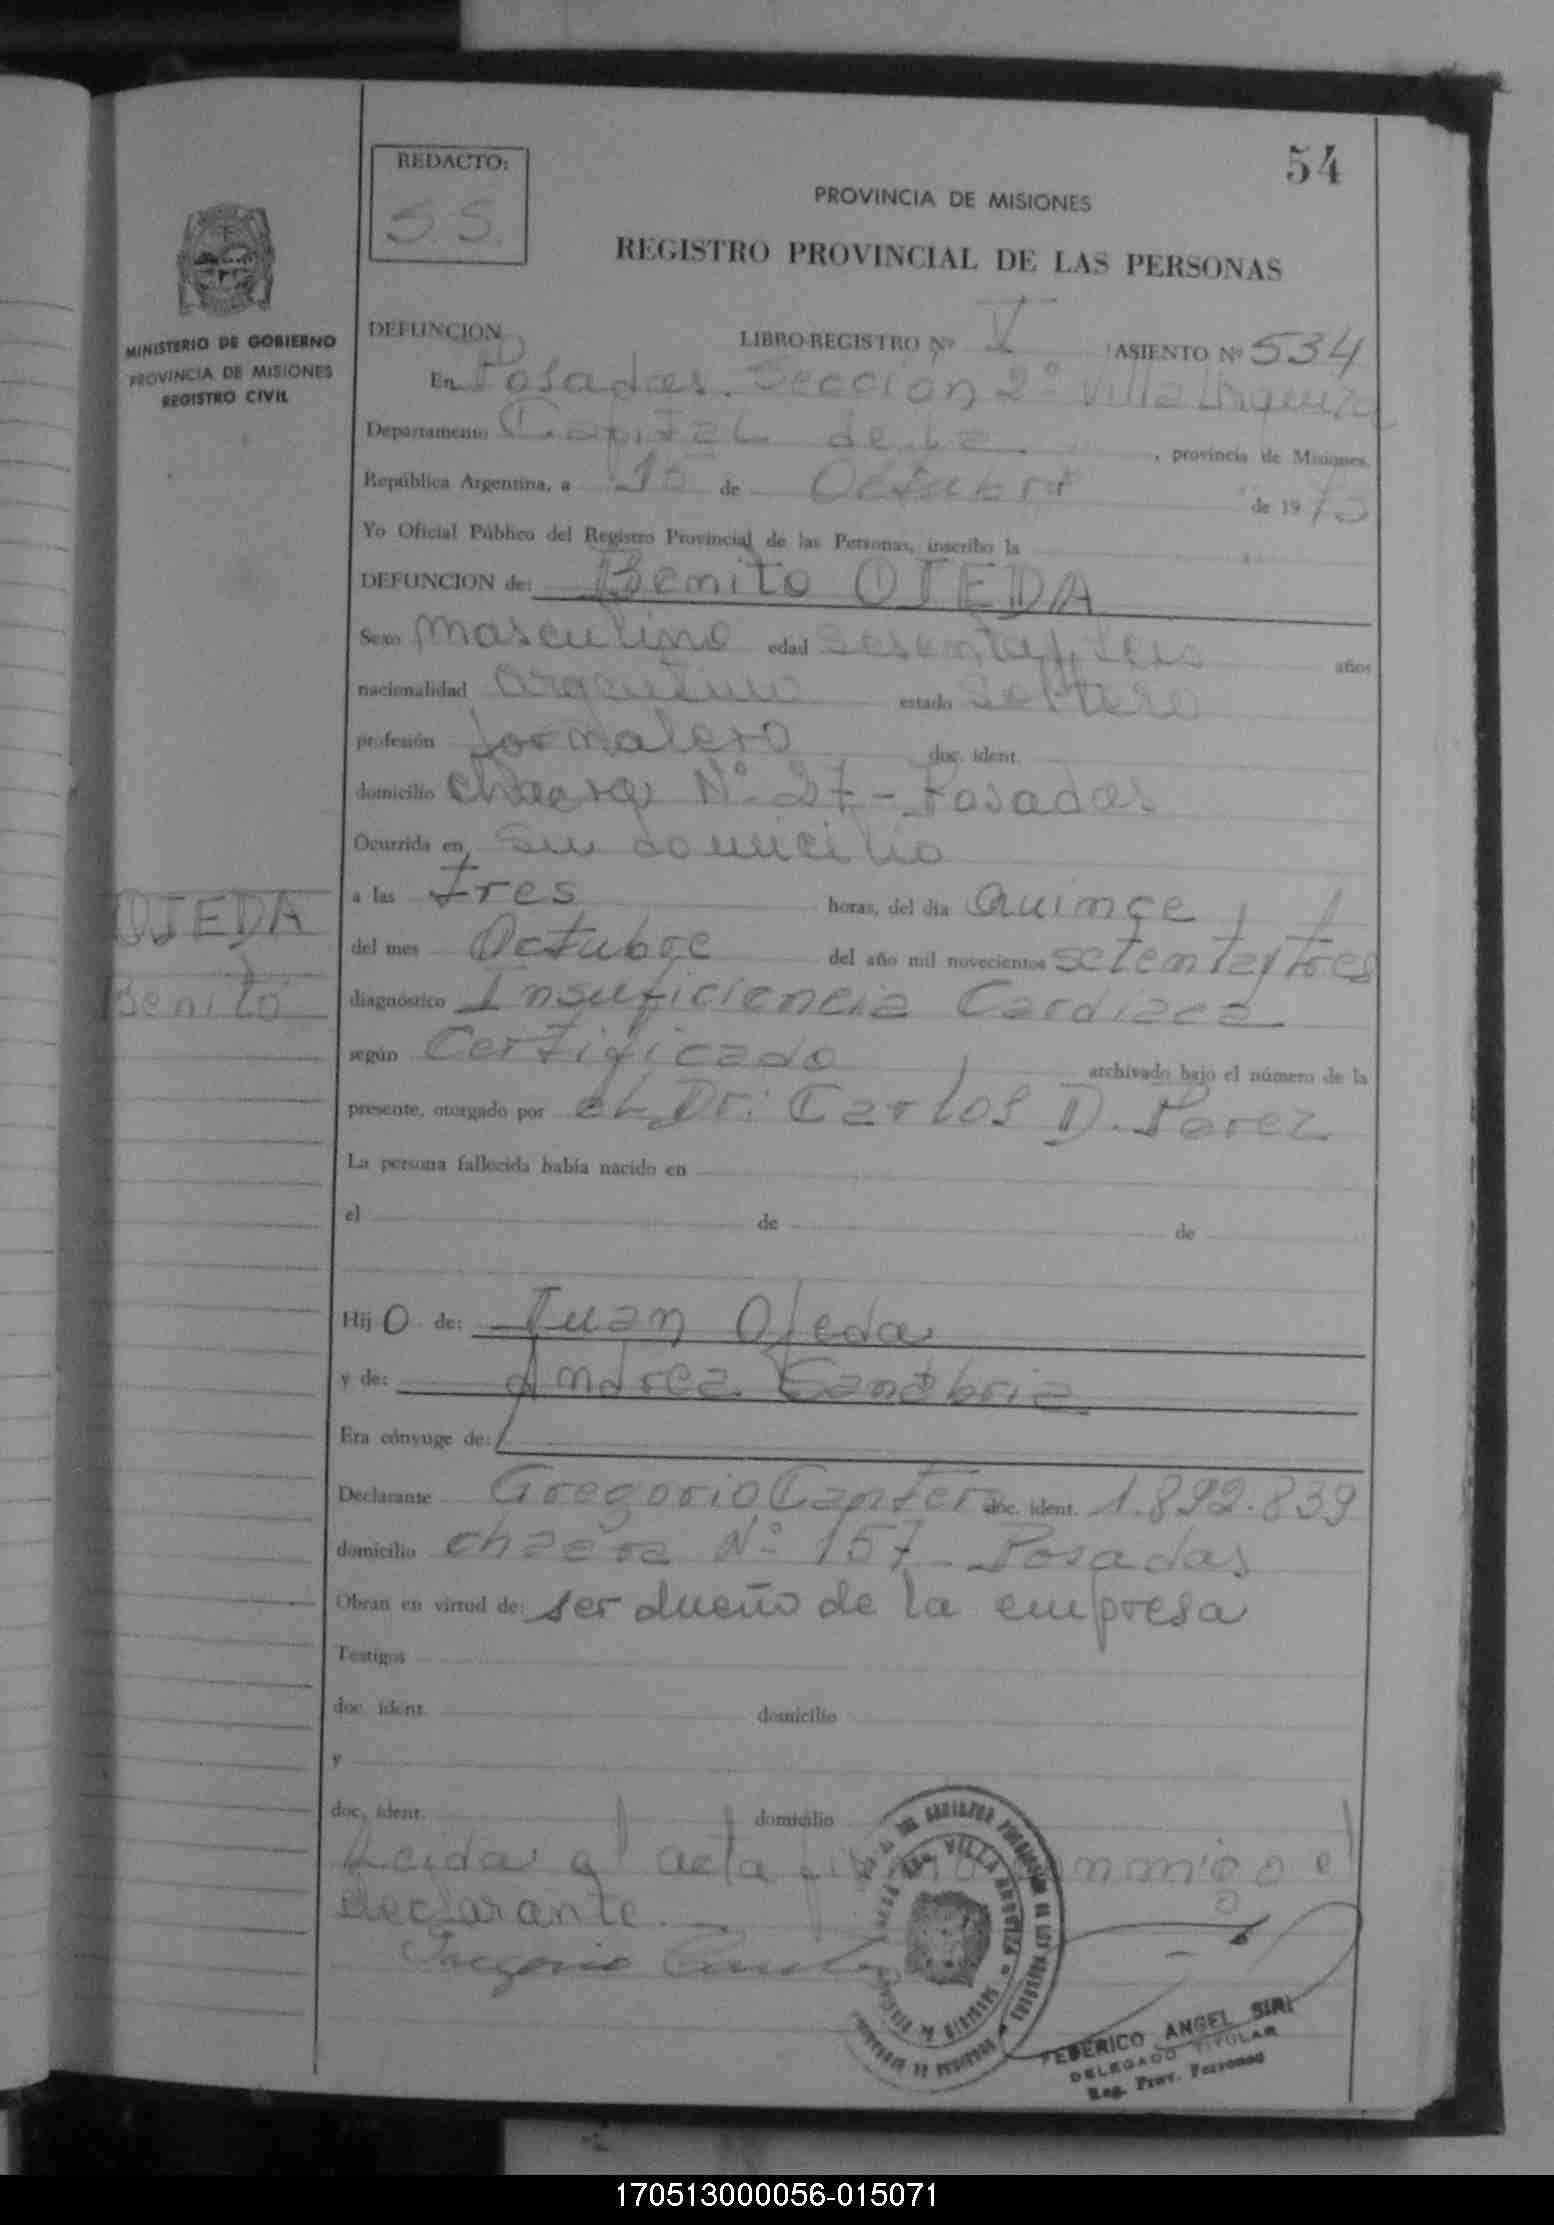 54
REDACTO:
S. S.
PROVINCIA DE MISIONES
REGISTRO PROVINCIAL DE LAS PERSONAS
MINISTERIO DE GOBIERNO
PROVINCIA DE MISIONES
REGISTRO CIVIL
DEFUNCION LIBRO-REGISTRO Nº V ASIENTO Nº 534
En Posadas. Seccion 2º Villa Urquiza
Departamento Capital de La , provincia de Misiones,
República Argentina, a de Octubre de 1973
Yo Oficial Público del Registro Provincial de las Personas, inscribo la
DEFUNCION de: Benito OJEDA
Sexo masculino edad sesenta y años
nacionalidad argentino estado soltero
profesión Jornalero doc. ident.
domicilio chacra Nº 27 - Posadas
Ocurrida en su domicilio
a las tres horas, del día Quince
OJEDA
del mes Octubre del año mil novecientos setenta y tres
Benito
diagnóstico Insuficiencia Cardiaca
según Certificado archivado bajo el número de la
presente, otorgado por el Dr: Carlos D. Perez
La persona fallecida había nacido en
el de de
Hij O de: Juan Ojeda
y de: Andrea Sanabria
Era cónyuge de:
Declarante Gregorio Cantero doc. ident. 1.892.839
domicilio chacra Nº 157 - Posadas
Obran en virtud de: ser dueño de la empresa
Testigos
doc. ident. domicilio
y
doc. ident. domicilio
Leida el acta firma conmigo el
declarante.
Gregorio
VILLA URQUIZA
FEDERICO ANGEL SIRI
DELEGADO TITULAR
Reg. Prov. Personas
170513000056-015071